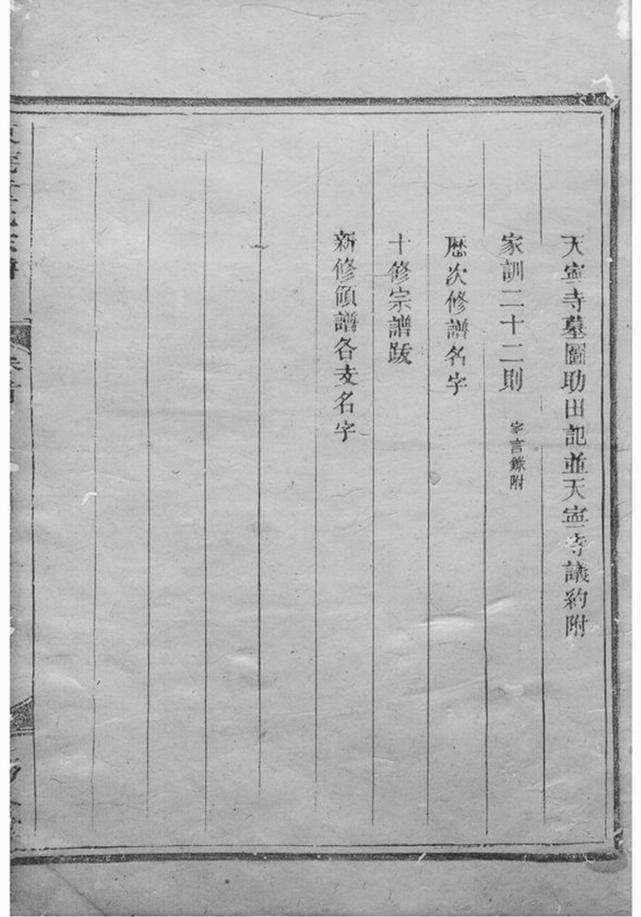 天寧寺墓圖助田記並天寧寺議約附
家訓二十二則 家言錄附
歷次修譜名字
十修宗譜跋
新修領譜各支名字